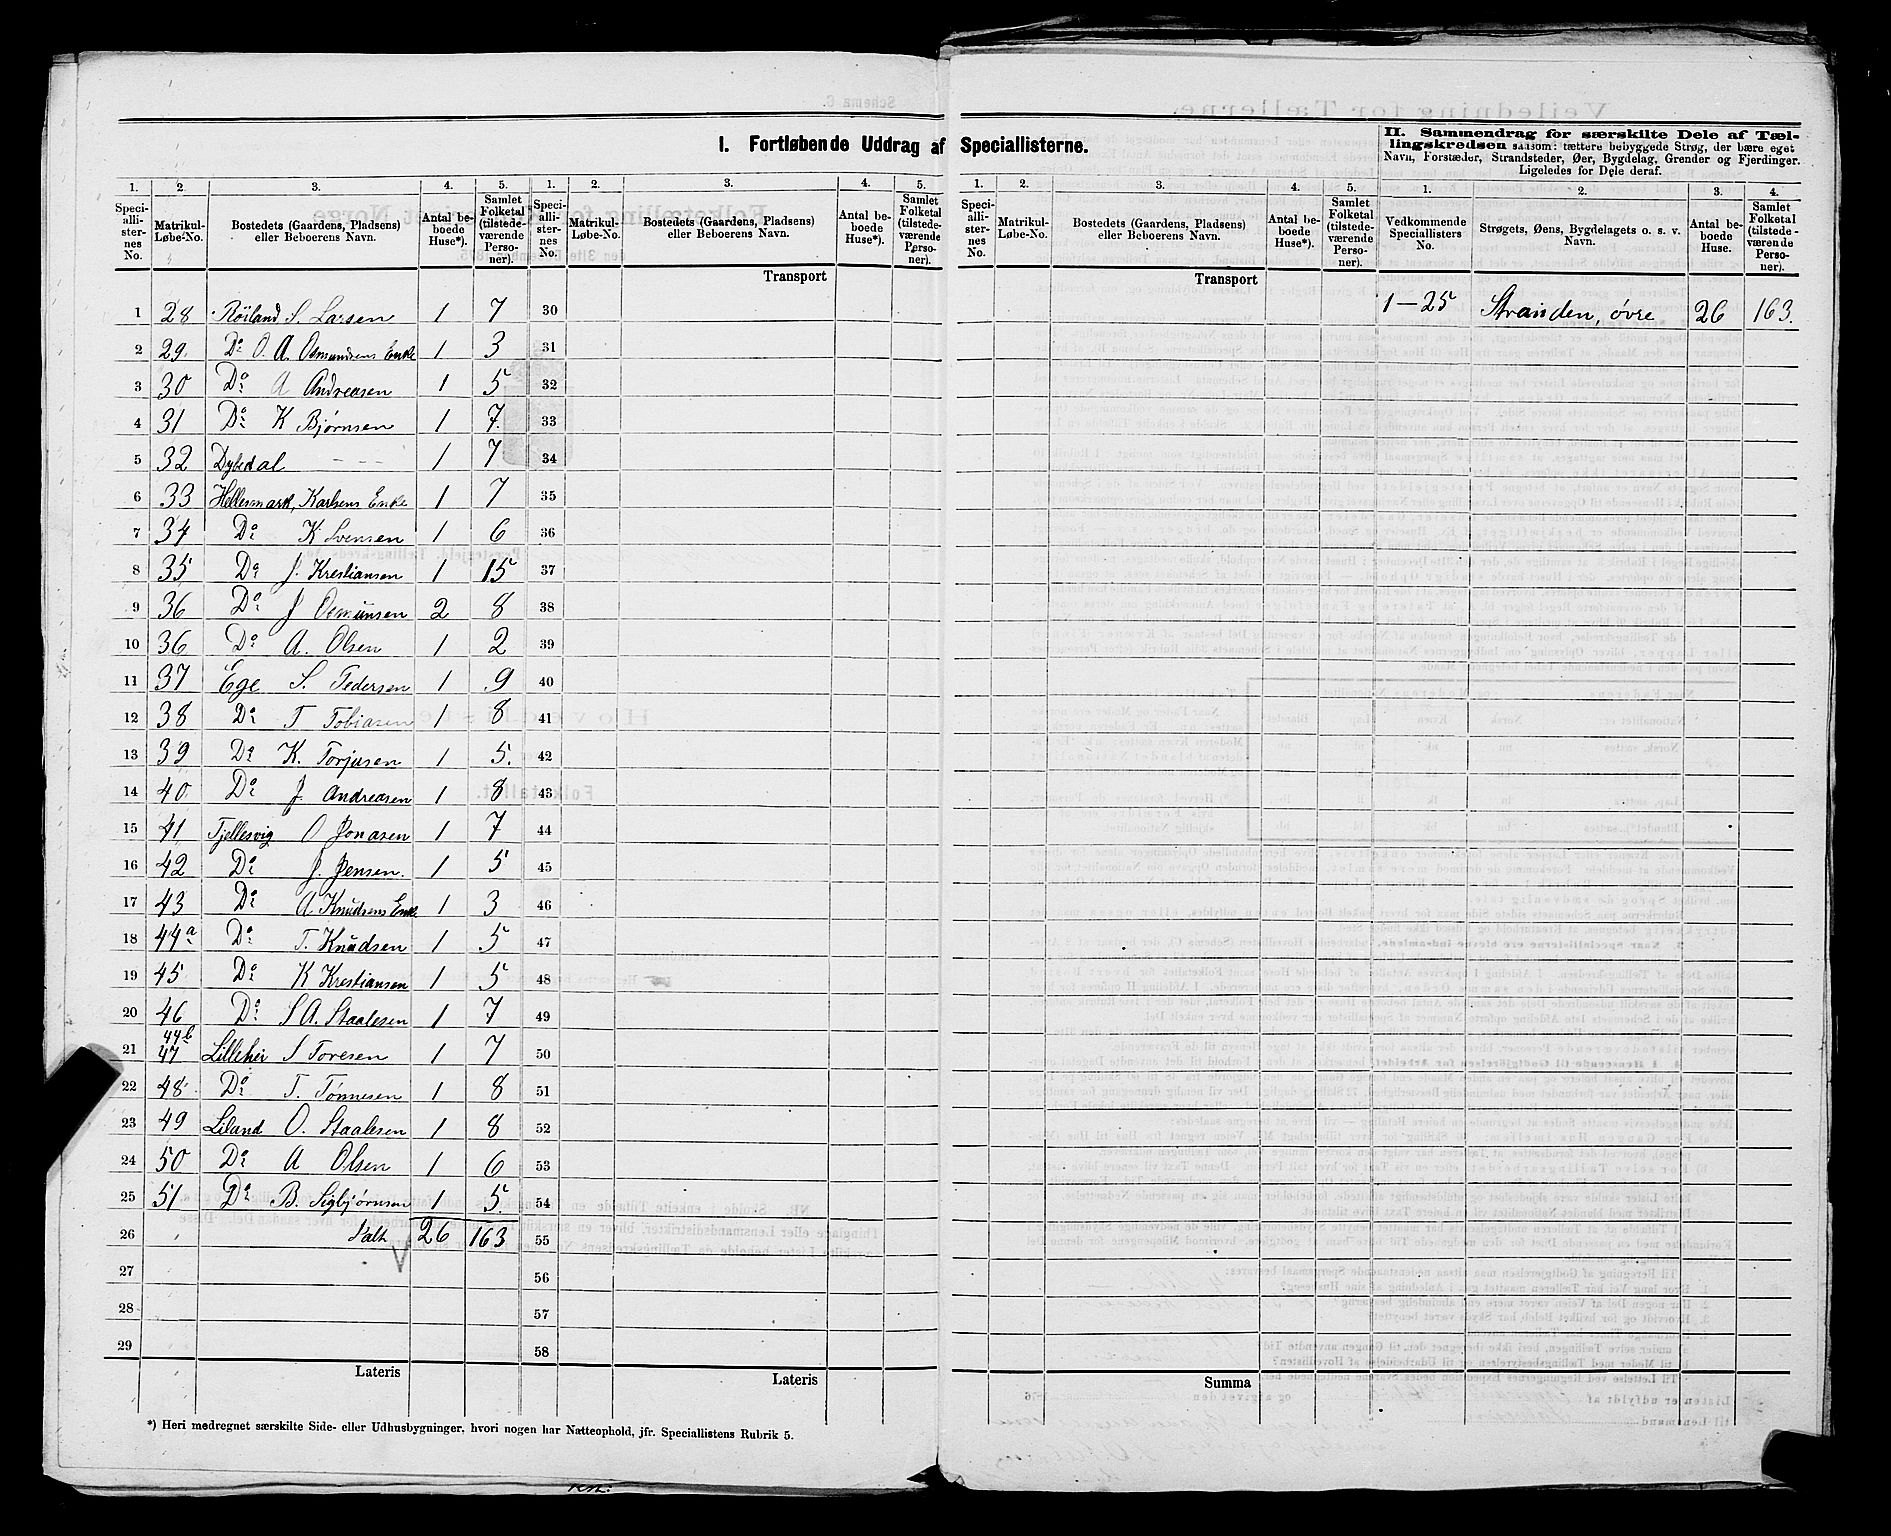 I. Fortløbende Uddrag af Speciallisterne.
II. Sammendrag for særskilte Dele af Tællingskredsen saasom: tættere bebyggede Strøg, der bære eget
Navn, Forstæder, Strandsteder, Øer, Bygdelag, Grender og Fjerdinger.
Ligeledes for Dele deraf.
1. 2. 3. 4. 5. 1. 2. 3. 4. 5. 1. 2. 3. 4. 5. 1. 2. 3. 4.
Speciallisternes No. Matrikul-Løbe-No. Bostedets (Gaardens, Pladsens) eller Beboerens Navn. Antal beboede Huse*). Samlet Folketal (tilstedeværende Personer).
Speciallisternes No. Matrikul-Løbe-No. Bostedets (Gaardens, Pladsens) eller Beboerens Navn. Antal beboede Huse*). Samlet Folketal (tilstedeværende Personer).
Speciallisternes No. Matrikul-Løbe-No. Bostedets (Gaardens, Pladsens) eller Beboerens Navn. Antal beboede Huse*). Samlet Folketal (tilstedeværende Personer).
Vedkommende Speciallisters No. Strøgets, Øens, Bygdelagets o. s. v. Navn. Antal beboede Huse. Samlet Folketal (tilstedeværende Personer).
Transport Transport
1 28 Røiland S. Larsen 1 7 30 1—25 Stranden, øvre 26 163.
2 29. Do O. A. Osmundsens Enke 1 3 31
3 30 Do A Andreasen 1 5 32
4 31 Do K Bjørnsen 1 7. 33
5 32 Dybedal - - - 1 7 34
6 33 Hellesmark, Karlsens Enke 1 7 35
7 34 Do K Svensen 1 6 36
8 35 Do J. Krestiansen 1 15 37
9 36 Do J Osmunsen 2 8 38
10 36 Do A. Olsen 1 2 39
11 37 Ege S. Pedersen 1 9 40
12 38 Do T Tobiasen 1 8 41
13 39 Do K. Torjusen 1 5. 42
14 40 Do J. Andreasen 1 8 43
15 41 Tjellesvig O Jonasen 1 7 44
16 42 Do J. Jensen. 1 5 45
17 43 Do A Knudsens Enke 1 3 46
18 44a Do T. Knudsen 1 5 47
19 45 Do K Krestiansen 1 5 48
20 46 Do S A. Staalesen 1 7 49
44b
21 47 Lillehei S Toresen 1 7 50
22 48 Do T. Tønnesen 1 8 51
23 49 Liland O. Staalesen 1 8 52
24 50 Do A Olsen 1 6 53
25 51 Do B. Sigbjørnsen 1 5. 54
26 Talt 26 163 55
27 56
28 57
29 58
Lateris Lateris Summa
*) Heri medregnet særskilte Side- eller Udhusbygninger, hvori nogen har Natteophold, jfr. Speciallistens Rubrik 5.